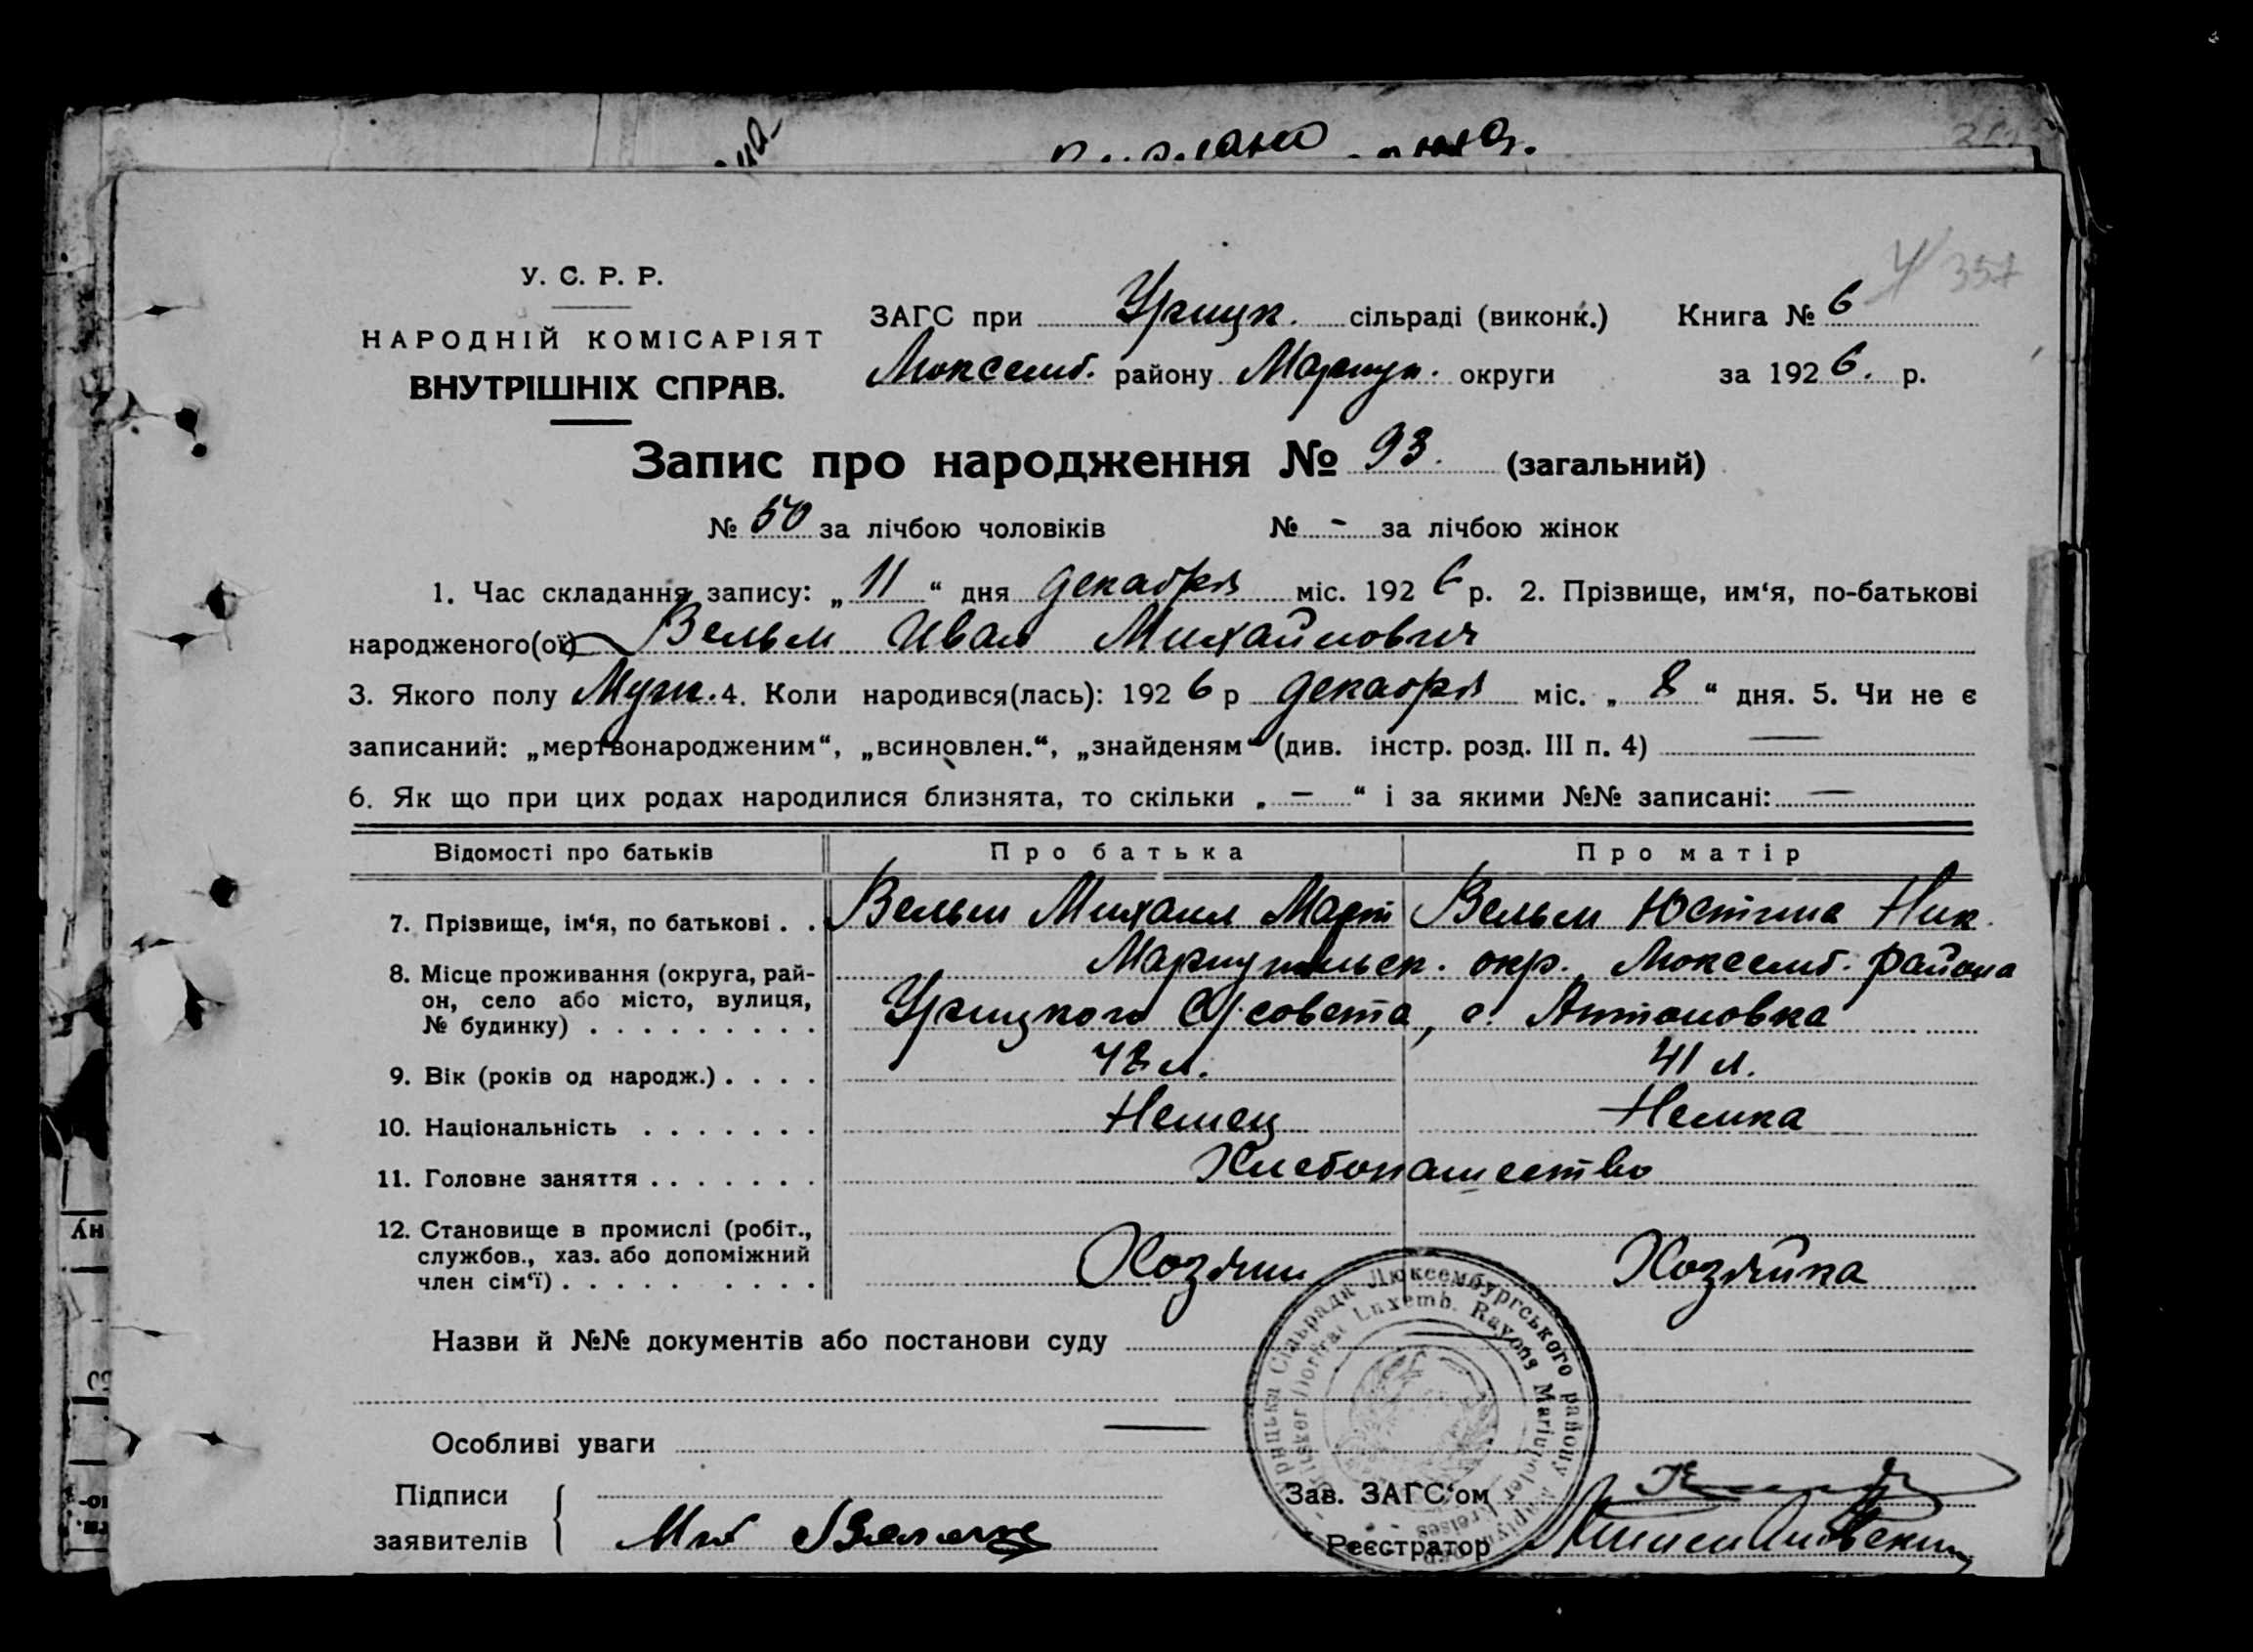 У. С. Р. Р.
НАРОДНІЙ КОМІСАРІЯТ
ВНУТРІШНІХ СПРАВ.
ЗАГС при Урицк. сільраді (виконк.) Книга № 6
Люксемб. району Мариуп. округи за 1926. р.
357
Запис про народження № 93. (загальний)
№ 50 за лічбою чоловіків № - за лічбою жінок
1. Час складання запису: „11“ дня декабря міс. 1926 р. 2. Прізвище, им‘я, по-батькові
народженого(ої) Вельм Иван Михайлович
3. Якого полу Муж. 4. Коли народився(лась): 1926 р декабря міс. „8“ дня. 5. Чи не є
записаний: „мертвонародженим“, „всиновлен.“, „знайденям“ (див. інстр. розд. III п. 4) —
6. Як що при цих родах народилися близнята, то скільки „—“ і за якими №№ записані: —
Відомості про батьків Про батька Про матір
7. Прізвище, ім‘я, по батькові . . Вельм Михаил Март Вельм Юстина Ник.
8. Місце проживання (округа, рай-
он, село або місто, вулиця,
№ будинку) . . . . . . . . .
Мариупольск. окр., Люксемб. района
Урицкого С/совета, с. Антоновка
9. Вік (років од народж.) . . . . 42 л. 41 л.
10. Національність . . . . . . . Немец Немка
11. Головне заняття . . . . . . . Хлебопашество
12. Становище в промислі (робіт.,
службов., хаз. або допоміжний
член сім‘ї) . . . . . . . . . Хозяин Хозяйка
Назви й №№ документів або постанови суду
Люксембургського району
Luxemb. Rayons Mariupoler Kreises
Особливі уваги —
Підписи
заявителів
Мих
Зав. ЗАГС‘ом
Реєстратор